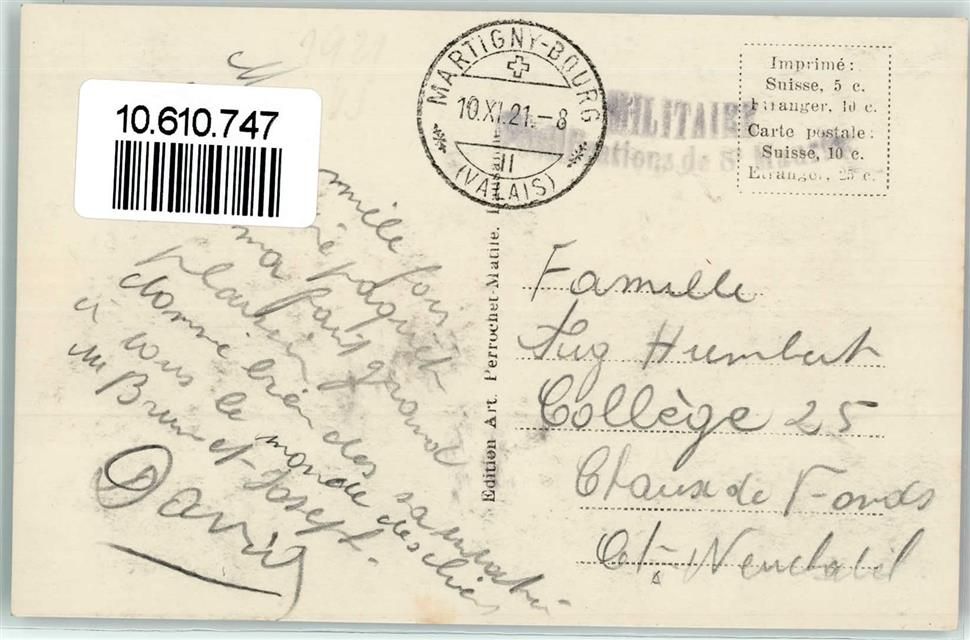 1921
10.610.747
MARTIGNY-BOURG
10.XI.21.-8
II
(VALAIS)
MILITAIRE
de St
Imprimé:
Suisse, 5 c.
Etranger, 10 c.
Carte postale:
Suisse, 10 c.
Etranger, 25 c.
Edition Art. Perrochet-Matile,
mille fois
paquet
ma fait grand
plaisir
donne bien des
à tous le monde
M Brun et Joseph.
David
Famille
Aug Humbert
Collège 25
Chaux de Fonds
Ct. Neuchatel